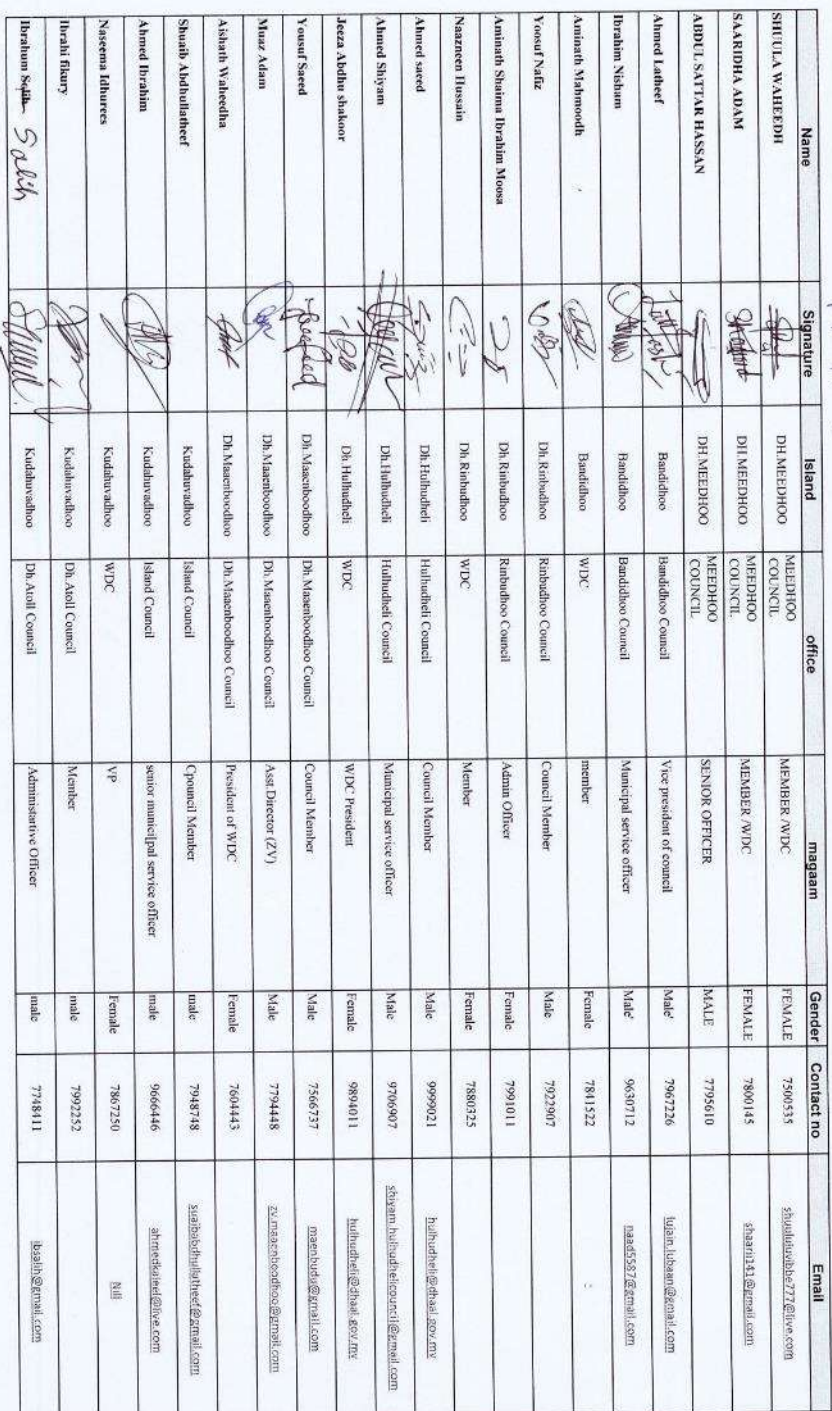 Name Signature Island office magaam Gender Contact no Email
SHUULA WAHEEDH DH.MEEDHOO MEEDHOO COUNCIL MEMBER /WDC FEMALE 7500535 shuulujuvibbe777@live.com
SAARIDHA ADAM DH.MEEDHOO MEEDHOO COUNCIL MEMBER /WDC FEMALE 7800145 shaarii141@gmail.com
ABDUL SATTAR HASSAN DH.MEEDHOO MEEDHOO COUNCIL SENIOR OFFICER MALE 7795610
Ahmed Latheef Bandidhoo Bandidhoo Council Vice president of council Male' 7967226 lujain.lubaan@gmail.com
Ibrahim Nisham Bandidhoo Bandidhoo Council Municipal service officer Male' 9630712 naad5587@gmail.com
Aminath Mahmoodh Bandidhoo WDC member Female 7841522
Yoosuf Nafiz Dh.Rinbudhoo Rinbudhoo Council Council Member Male 7922907
Aminath Shaima Ibrahim Moosa Dh.Rinbudhoo Rinbudhoo Council Admin Officer Female 7991011
Naazneen Hussain Dh.Rinbudhoo WDC Member Female 7880325
Ahmed saeed Dh.Hulhudheli Hulhudheli Council Council Member Male 9999021 hulhudheli@dhaal.gov.mv
Ahmed Shiyam Dh.Hulhudheli Hulhudheli Council Municipal service officer Male 9706907 shiyam.hulhudhelicouncil@gmail.com
Jeeza Abdhu shakoor Dh.Hulhudheli WDC WDC President Female 9894011 hulhudheli@dhaal.gov.mv
Yousuf Saeed Dh.Maaenboodhoo Dh.Maaenboodhoo Council Council Member Male 7566737 maenbudu@gmail.com
Muaz Adam Dh.Maaenboodhoo Dh.Maaenboodhoo Council Asst.Director (ZV) Male 7794448 zv.maaenboodhoo@gmail.com
Aishath Waheedha Dh.Maaenboodhoo Dh.Maaenboodhoo Council President of WDC Female 7604443
Shuaib Abdhullatheef Kudahuvadhoo Island Council Cpouncil Member male 7948748 suaibabdhullatheef@gmail.com
Ahmed Ibrahim Kudahuvadhoo Island Council senior municilpal service officer male 9666446 ahmedkuleel@live.com
Naseema Idhurees Kudahuvadhoo WDC VP Female 7867250 Nill
Ibrahi fikury Kudahuvadhoo Dh.Atoll Council Member male 7992252
Ibrahum Salih Kudahuvadhoo Dh.Atoll Council Administartive Officer male 7748411 ibsalih@gmail.com